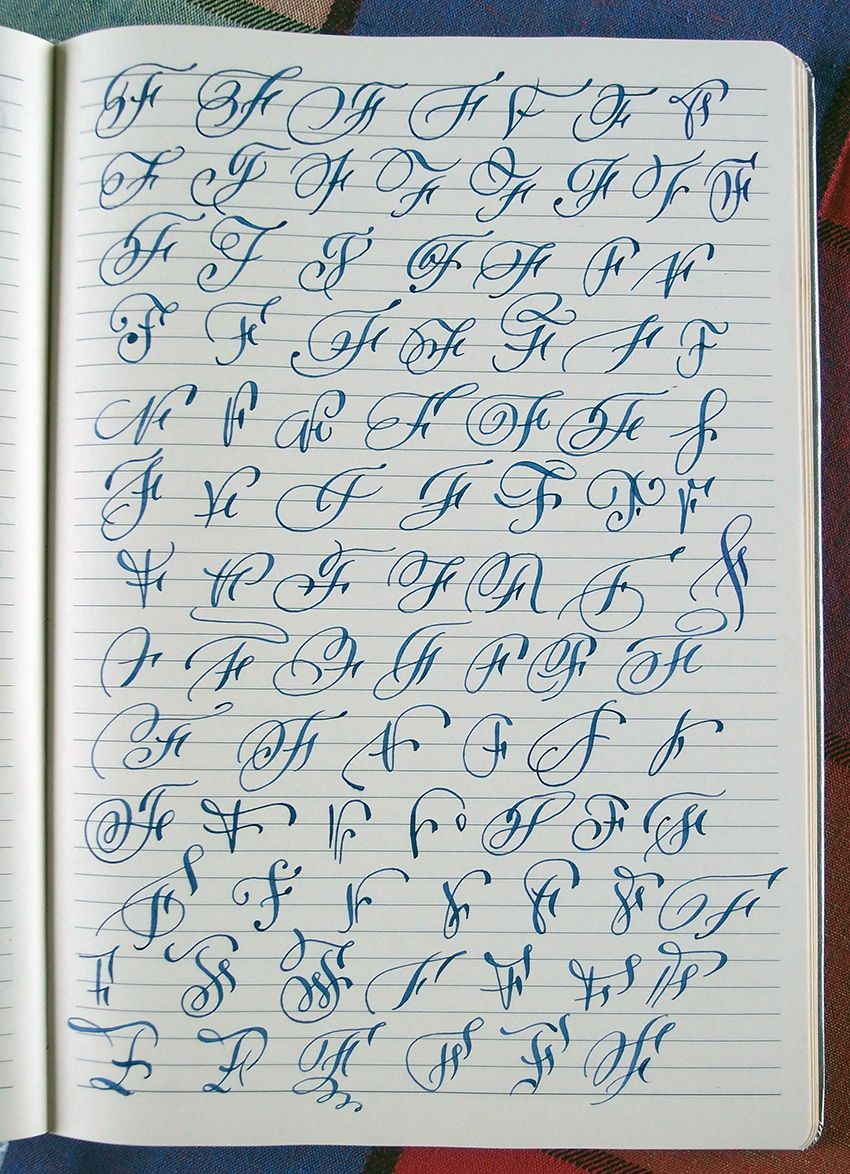 F F F F F F F
F F F F F F F F
F F F F F F F
F F F F F F F
F F F F F F F
F F F F F F F
F F F F F F F
F F F F F F F
F F F F F F
F F F F F F F
F F F F F F F
F F F F F F F
F F F F F F